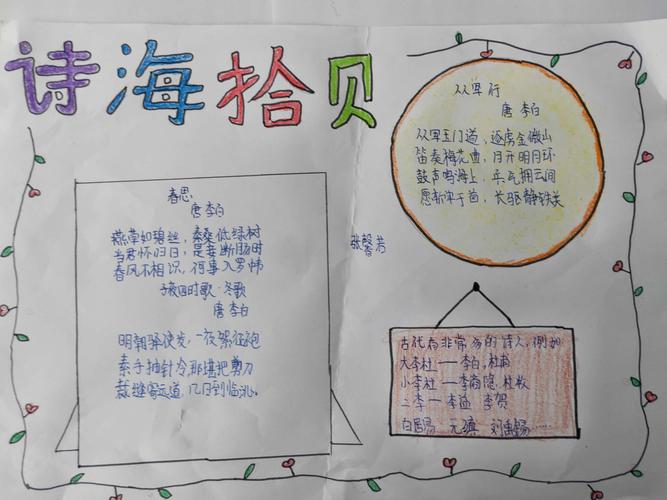 诗海拾贝
春思
唐 李白
燕草如碧丝，秦桑低绿树
当君怀归日，是妾断肠时
春风不相识，何事入罗帏
子夜四时歌·冬歌
唐 李白
明朝驿使发，一夜絮征袍
素手抽针冷，那堪把剪刀
裁缝寄远道，几日到临洮。
张馨芳
从军行
唐 李白
从军玉门道，逐虏金微山
笛奏梅花曲，月开明月环
鼓声鸣海上，兵气拥云间
愿斩单于首，长驱静铁关
古代有非常多的诗人，例如
大李杜——李白，杜甫
小李杜——李商隐，杜牧
二李——李益 李贺
白居易 元稹 刘禹锡……